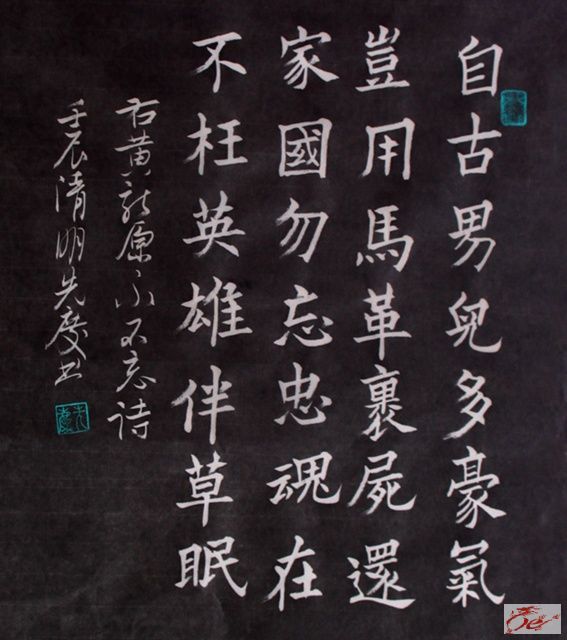 自古男兒多豪氣
豈用馬革裹屍還
家國勿忘忠魂在
不枉英雄伴草眠
右黃龍原永不忘詩
壬辰清明先慶书